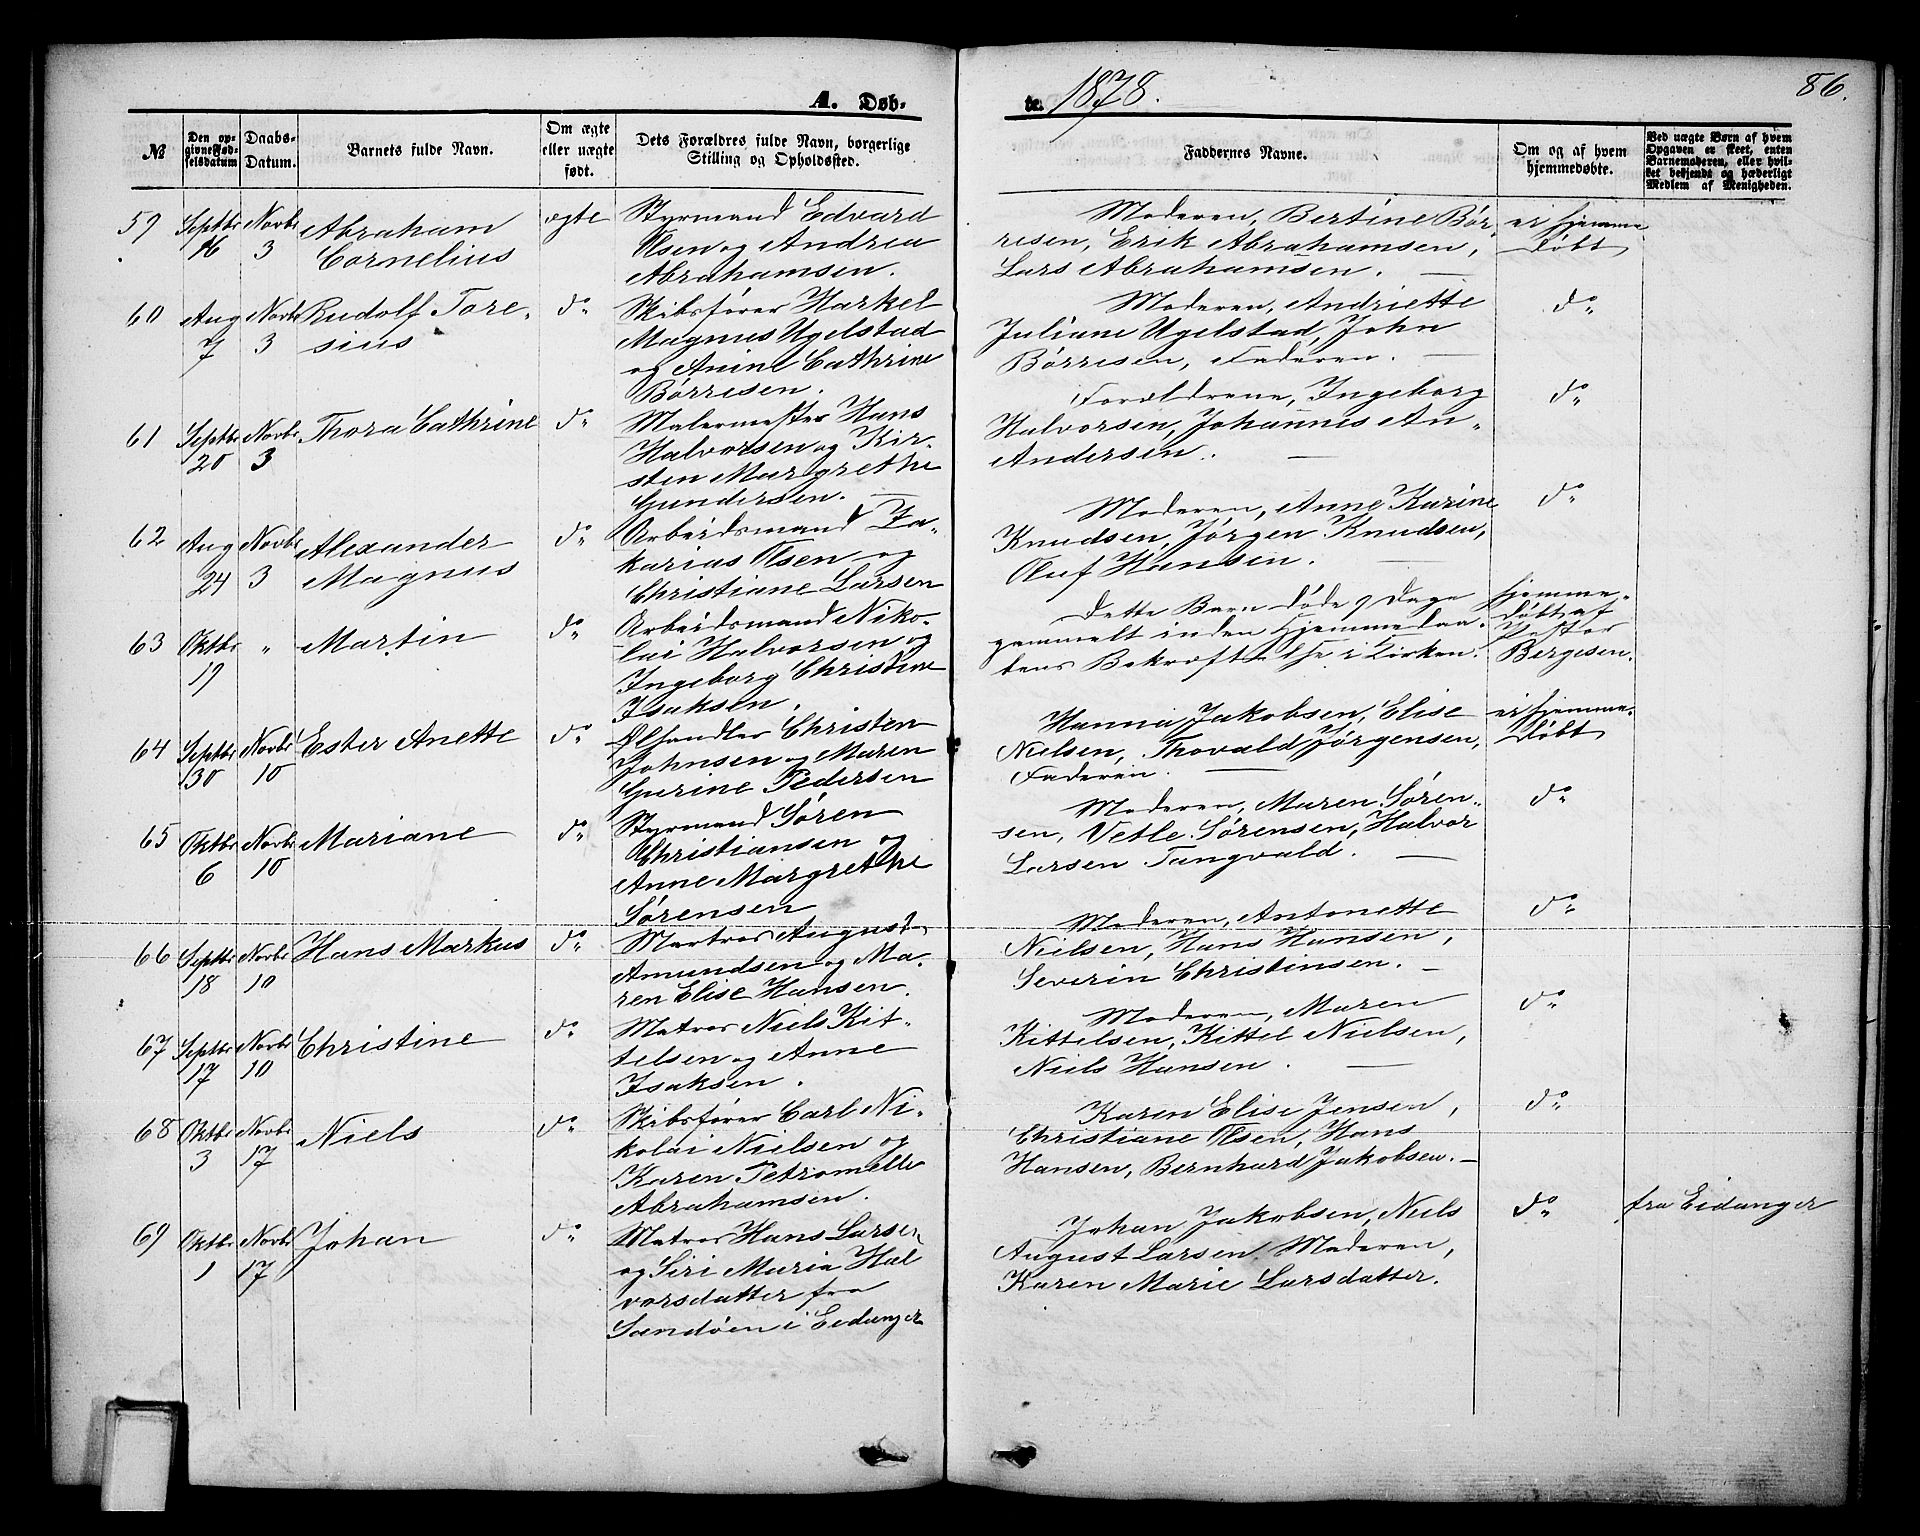 A. Døb-
te. 1878.
86.
№
Den op-
givne Fød-
selsdatum
Daabs-
Datum.
Barnets fulde Navn.
Om ægte
eller uægte
født.
Dets Forældres fulde Navn, borgerlige
Stilling og Opholdssted.
Faddernes Navne.
Om og af hvem
hjemmedøbte.
Ved uægte Børn af hvem
Opgaven er skeet, enten
Barnemoderen, eller hvil-
ket bekjendt og hæderligt
Medlem af Menigheden.
59 Septbr 16 Novbr 3 Abraham
Cornelius
ægte
Styrmand Edvard
Olsen og Andrea
Abrahamsen.
Moderen, Bertine Bör-
resen, Erik Abrahamsen,
Lars Abrahamsen. —
ei hjemme
døbt
60 Aug 7 Novbr 3 Rudolf Tore-
sius
do
Skibsfører Harkel
Magnus Ugelstad
og Anine Cathrine
Börresen.
Moderen, Andriette
Juliane Ugelstad, John
Börresen, Faderen. —
do
61 Septbr 20 Novbr 3 Thora Cathrine
do
Malermester Hans
Halvorsen og Kir-
sten Margrethe
Gundersen. —
Forældrene, Ingeborg
Halvorsen, Johannes An-
Andersen. —
do
62 Aug 24 Novbr 3 Alexander
Magnus
do
Arbeidsmand Za-
karias Olsen og
Christiane Larsen
Moderen, Anne Karine
Knudsen, Jørgen Knudsen,
Oluf Hansen. —
do
63 Oktbr 19 " Martin
do
Arbeidsmand Niko-
lai Halvorsen og
Ingeborg Christine
Isaksen.
Dette Barn døde 9 Dage
gammelt inden Hjemmedaa-
bens Bekræftelse i Kirken.
hjemme-
døbt af
Pastor
Bergesen.
64 Septbr 30 Novbr 10 Ester Anette
do
Ølhandler Christen
Johnsen og Maren
Gurine Pedersen
Hanna Jakobsen, Elise
Nielsen, Thovald Jørgensen,
Faderen. —
ei hjemme-
døbt
65 Oktbr 6 Novbr 10 Mariane
do
Styrmand Søren
Christiansen og
Anne Margrethe
Sørensen
Moderen, Maren Søren-
sen, Vetle Sørensen, Halvor
Larsen Tangvald. —
do
66 Septbr 18 Novbr 10 Hans Markus
do
Matros August
Amundsen og Ma-
ren Elise Hansen.
Moderen, Antonette
Nielsen, Hans Hansen,
Severin Christinsen. —
do
67 Septbr 17 Novbr 10 Christine
do
Matros Niels Kit-
telsen og Anne
Isaksen.
Moderen, Maren
Kittelsen, Kittel Nielsen,
Niels Hansen. —
do
68 Oktbr 3 Novbr 17 Niels
do
Skibsfører Carl Ni-
kolai Nielsen og
Karen Petromelle
Abrahamsen.
Karen Elise Jensen,
Christiane Olsen, Hans
Hansen, Bernhard Jakobsen. —
do
69 Oktbr 1 Novbr 17 Johan
do
Matros Hans Larsen
og Siri Maria Hal
vorsdatter fra
Sandöen i Eidanger
Johan Jakobsen, Niels
August Larsen, Moderen,
Karen Marie Larsdatter.
do
fra Eidanger